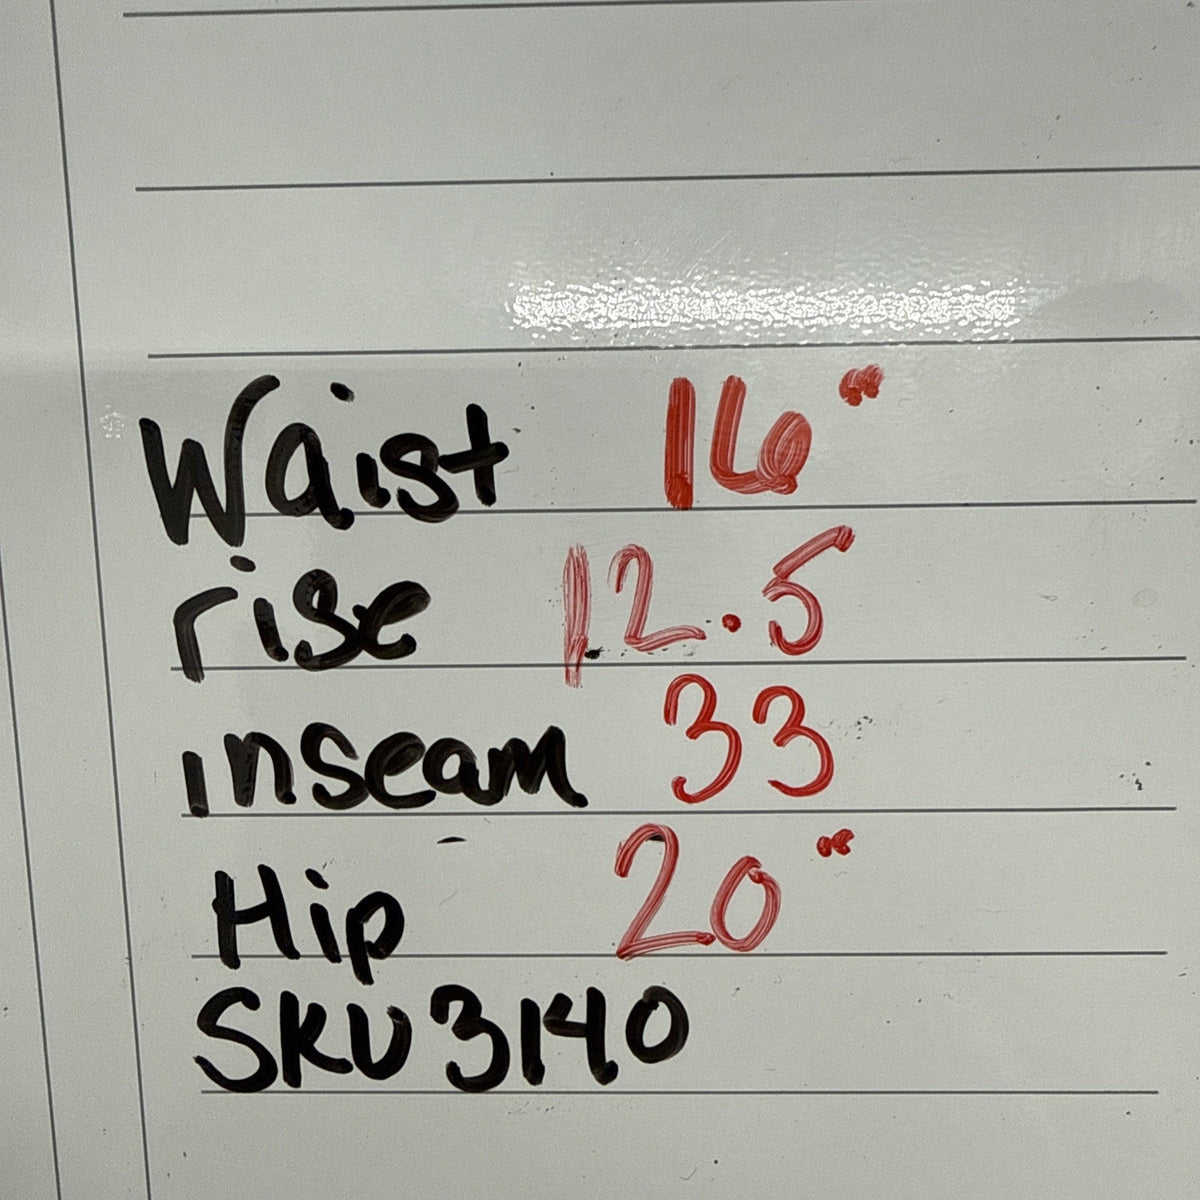 Waist 16"
rise 12.5
inseam 33
Hip 20"
SKU 3140